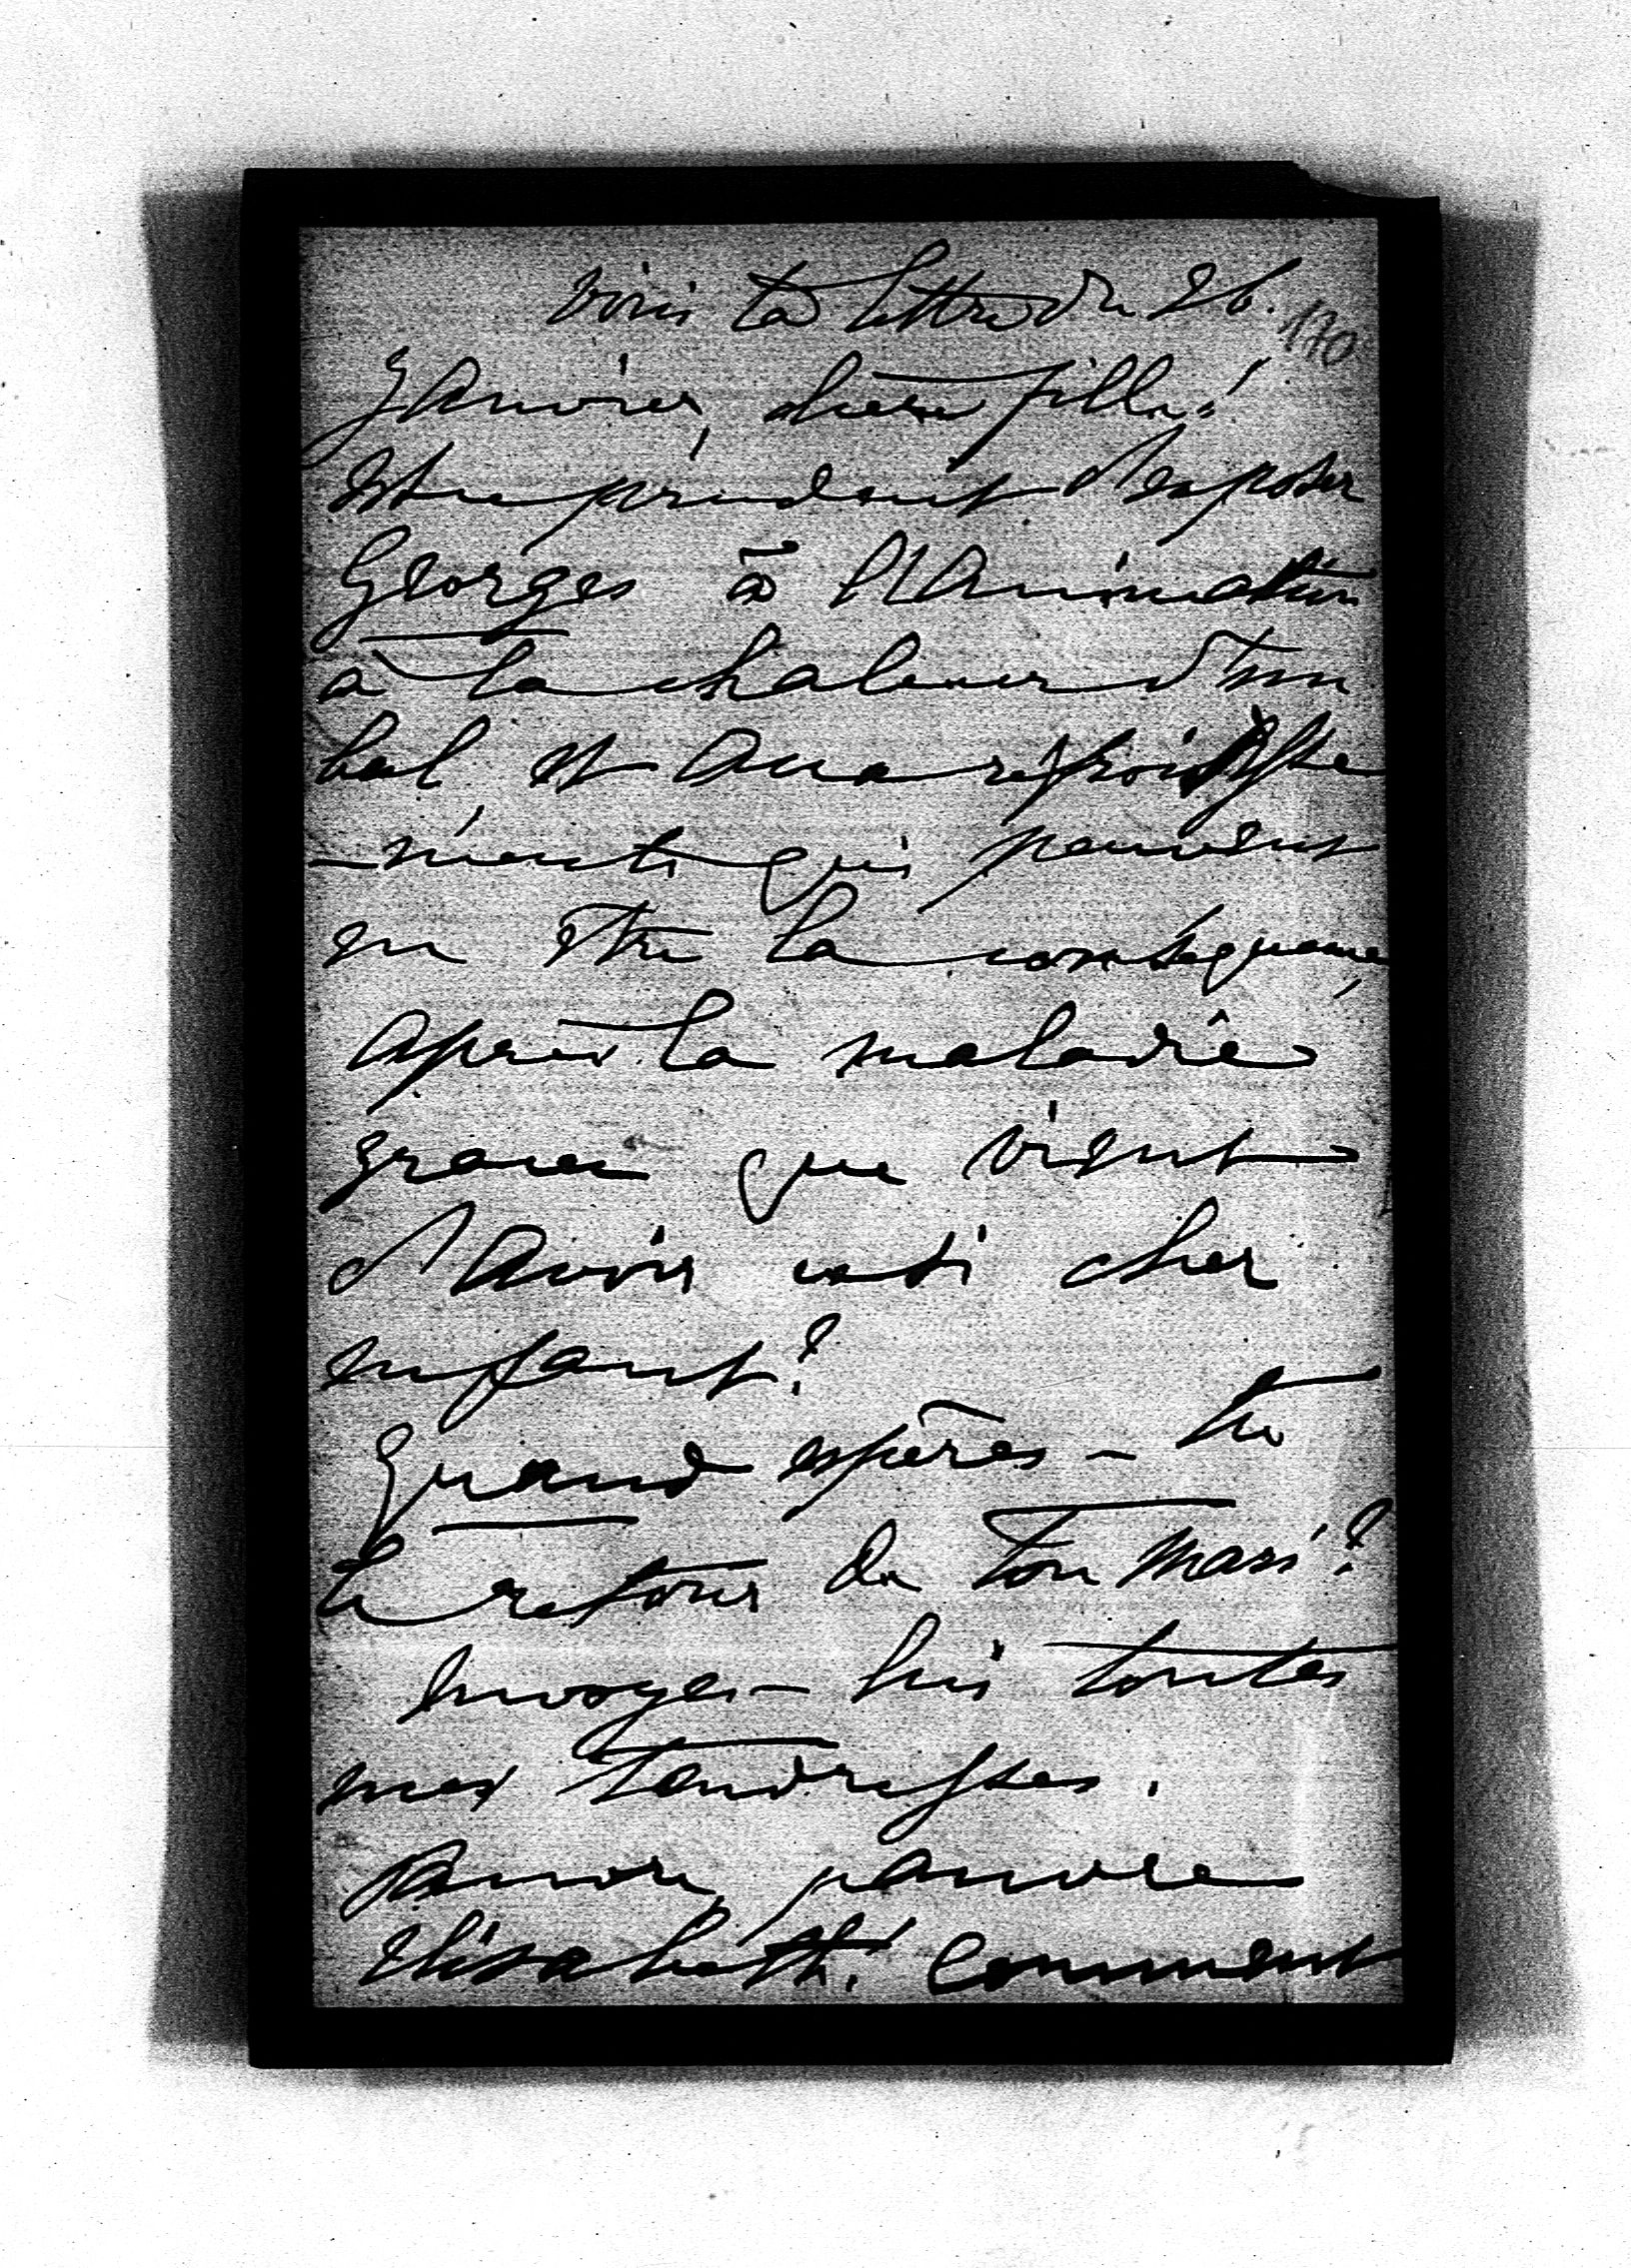 Voici ta lettre du 26. 170
Janvier, chère fille!
Est-ce prudent d'exposer
Georges à l'animation
à la chaleur d'un
bal, et aux refroidisse
-ments qui peuvent
en être la conséquence,
après la maladie
grave que vient
d'avoir cet cher
enfant?
Quand espères-tu
le retour de ton mari?
Envoyes-lui toutes
mes tendresses.
Pauvre, pauvre
Elisabeth! Comment